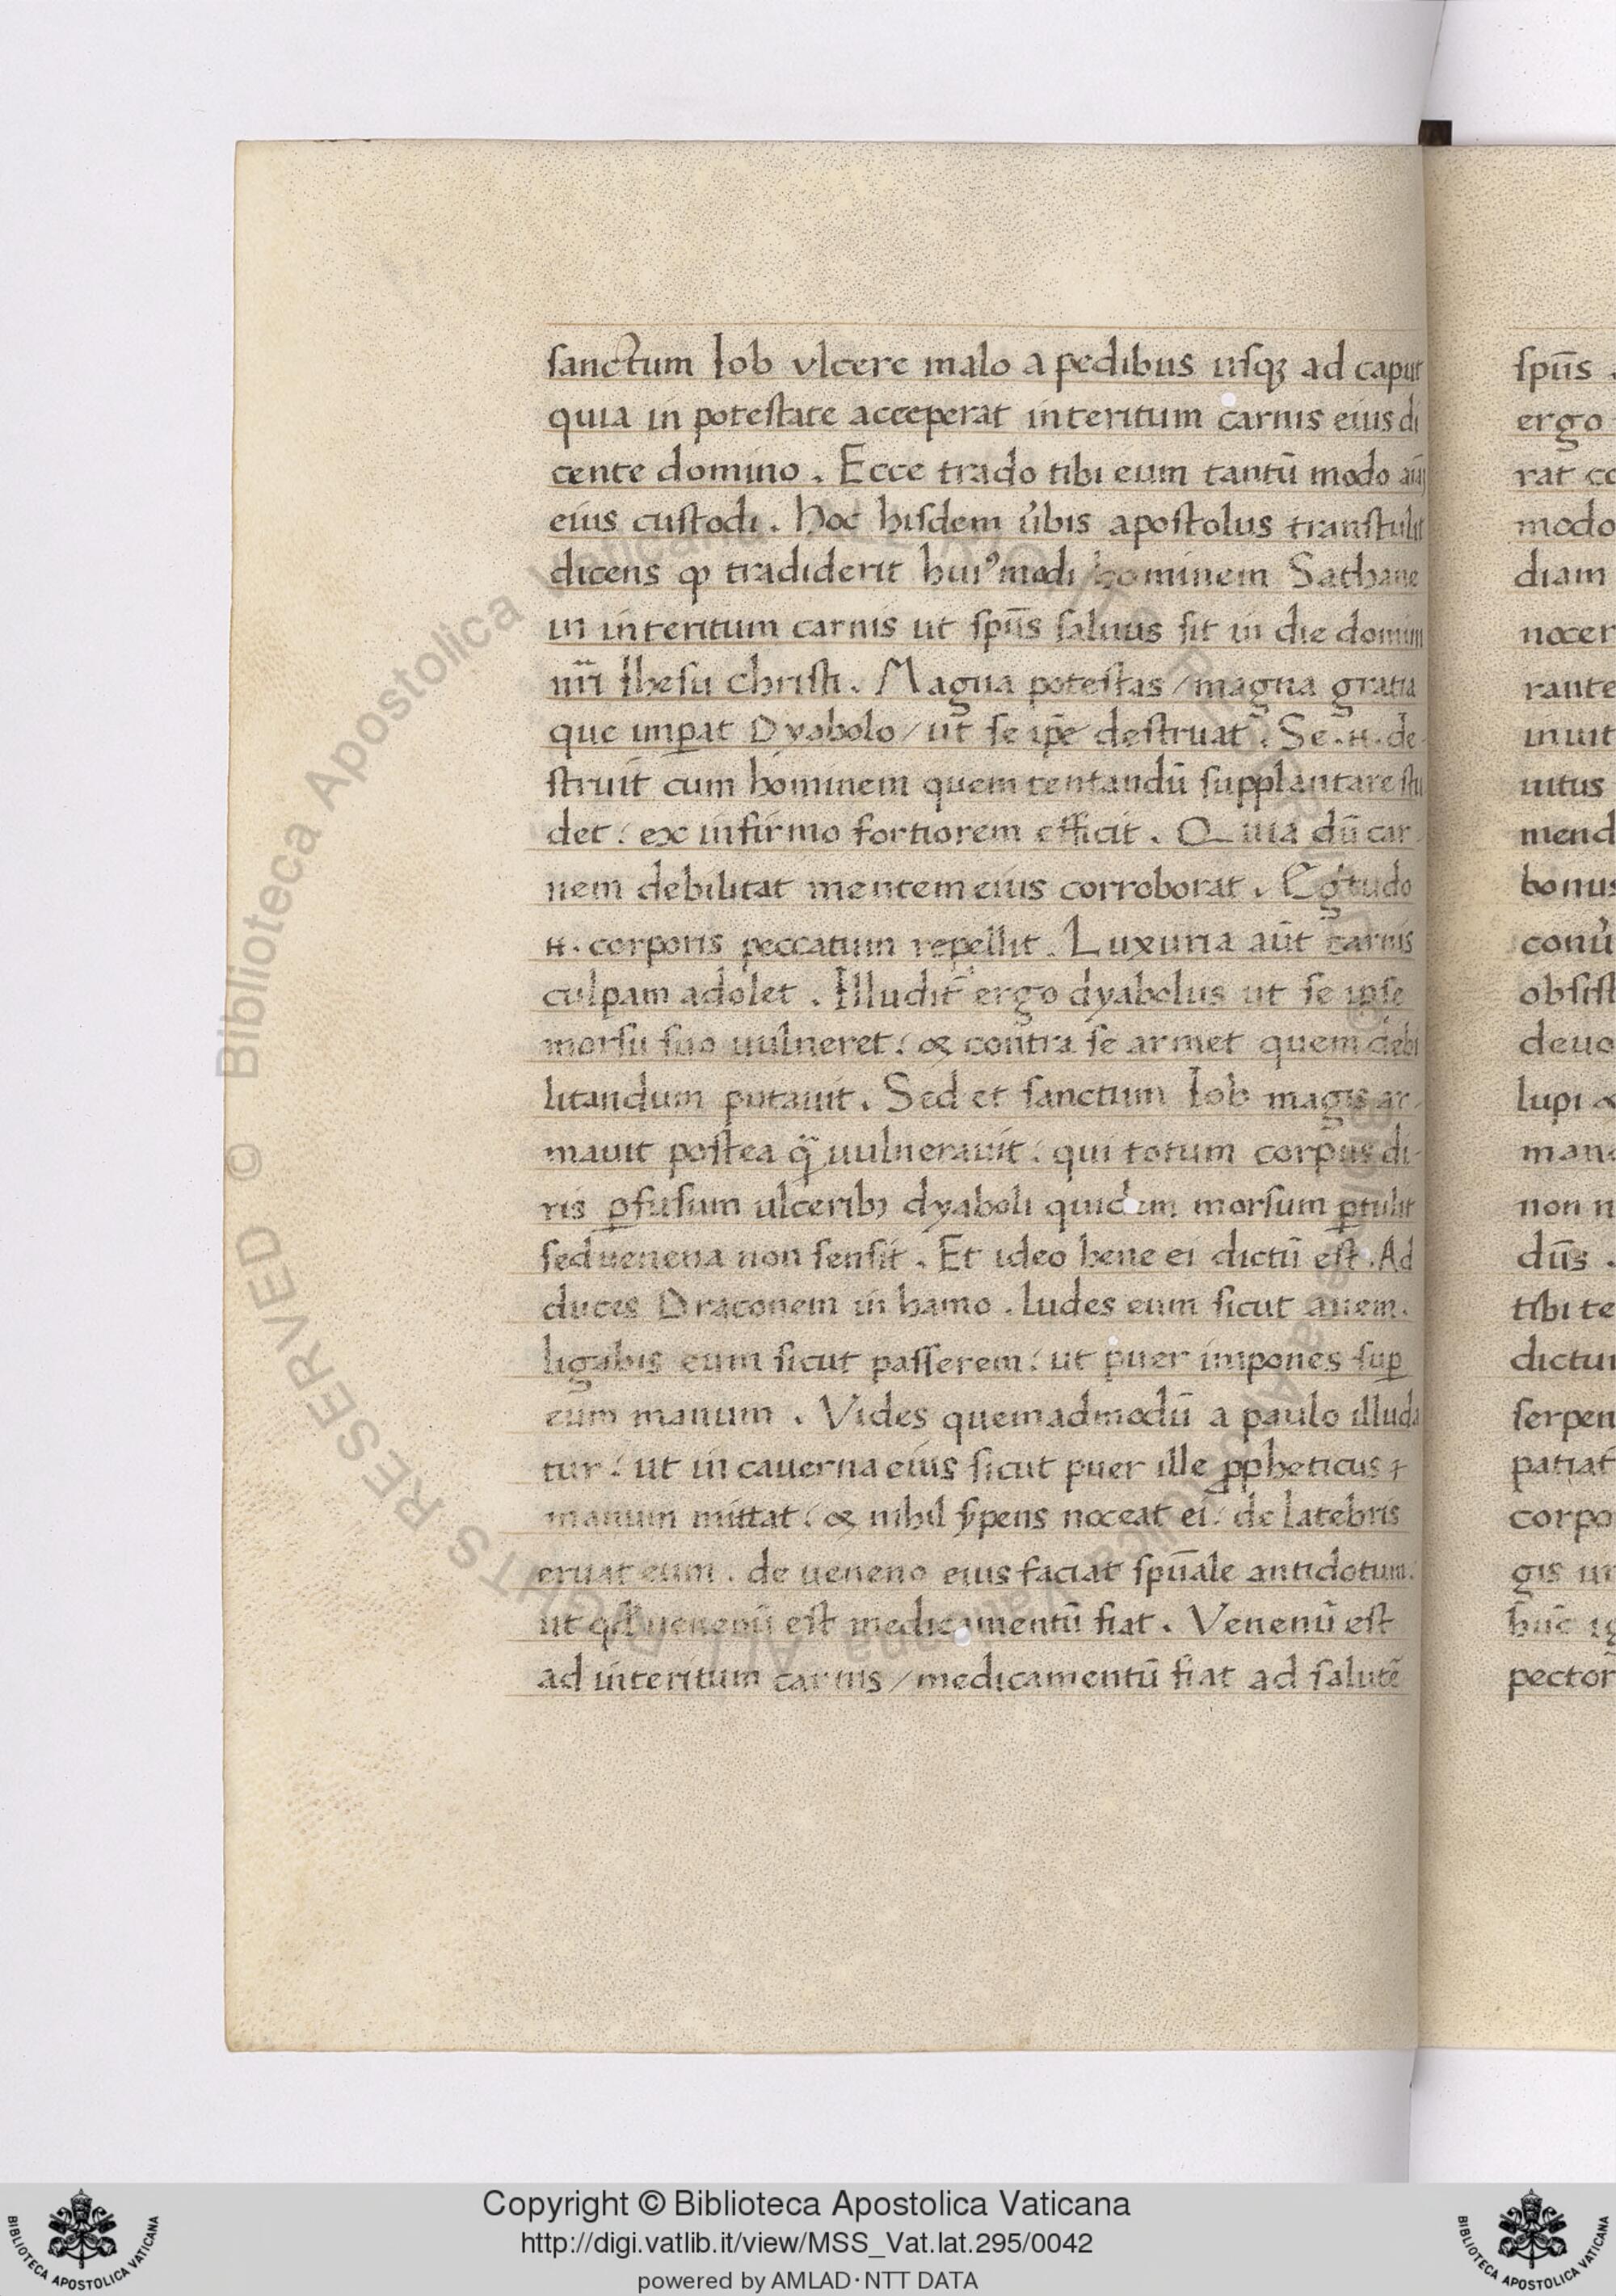 sanctum Iob vlcere malo a pedibus usqȝ ad caput
quia in potestate acceperat interitum carnis eius di
cente domino. Ecce trado tibi eum tantū modo aīaȝ
eius custodi. hoc hisdem ủbis apostolus transtulit
dicens ꝙ tradiderit huiꝰmodi hominem Sathane
in interitum carnis ut spūs saluus sit in die domini
nr̄i Ihesu christi. Magna potestas / magna gratia
que imꝑat Dyabolo / ut se ip̄e destruat. Se .n. de
struit cum hominem quem tentandū supplantare stu
det: ex infirmo fortiorem efficit. Quia dū car
nem debilitat mentem eius corroborat. Egͥtudo
.n. corporis peccatum repellit. Luxuria aūt carnis
culpam adolet. Illudit ergo dyabolus ut se ipse
morsu suo uulneret: & contra se armet quem debi
litandum putauit. Sed et sanctum Iob magis ar
mauit postea q̄ uulnerauit: qui totum corpus di
ris ꝑfusum ulceribꝫ dyaboli quidem morsum ꝑtulit
sed uenena non sensit. Et ideo bene ei dictū est. Ad
duces Draconem in hamo. ludes eum sicut auem.
ligabis eum sicut passerem: ut puer impones suꝑ
eum manum. Vides quemadmodū a paulo illuda
tur: ut in cauerna eius sicut puer ille ꝓpheticus
manum mittat: & nihil s̉pens noceat ei: de latebris
eruat eum. de ueneno eius faciat spūale antidotum.
ut qđ uenenū est medicamentū fiat. Venenū est
ad interitum carnis / medicamentū fiat ad salutē
spūs
ergo
rat co
modo
diam
nocer
rante
inuit
uitus
mend
bonus
conủ
obsist
deuo
lupi &
man
non n
dūs .
tibi te
dictu
serpen
patiat
corpo
gis ur
hūc ig
pector
© Biblioteca Apostolica Vaticana ALL RIGHTS RESERVED
Copyright © Biblioteca Apostolica Vaticana
http://digi.vatlib.it/view/MSS_Vat.lat.295/0042
powered by AMLAD·NTT DATA
BIBLIOTECA APOSTOLICA VATICANA
BIBLIOTECA APOSTOLICA VATICANA